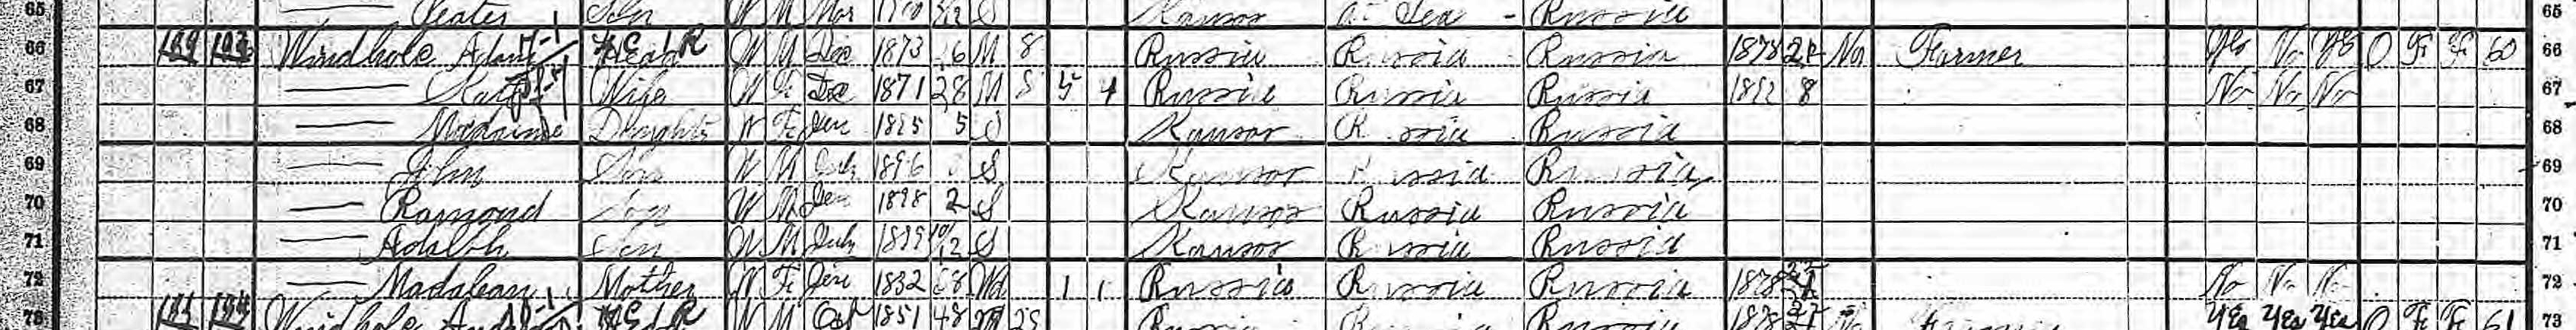 65 Peater Son W M Mar S Kansas at Sea - Russia 65
66 Windhole Adam Head W M Dec 1873 26 M 8 Russia Russia Russia 1878 No Farmer Yes No Yes O F F 60 66
67 Wife W F Dec 1871 28 M 8 5 4 Russia Russia Russia 1892 8 No No No 67
68 Daughter W F Jan 1895 5 S Kansas Russia Russia 68
69 John Son W M July 1896 S Kansas Russia Russia 69
70 Ramond Son W M Jan 1898 2 S Kansas Russia Russia 70
71 Adolph Son W M July 1899 10/12 S Kansas Russia Russia 71
72 Madalean Mother W F Jan 1832 68 Wd 1 1 Russia Russia Russia 1878 No No No 72
73 Windhole Head W M Oct 1851 48 M Russia Russia Russia 1878 Farmer Yes Yes Yes O F F 61 73